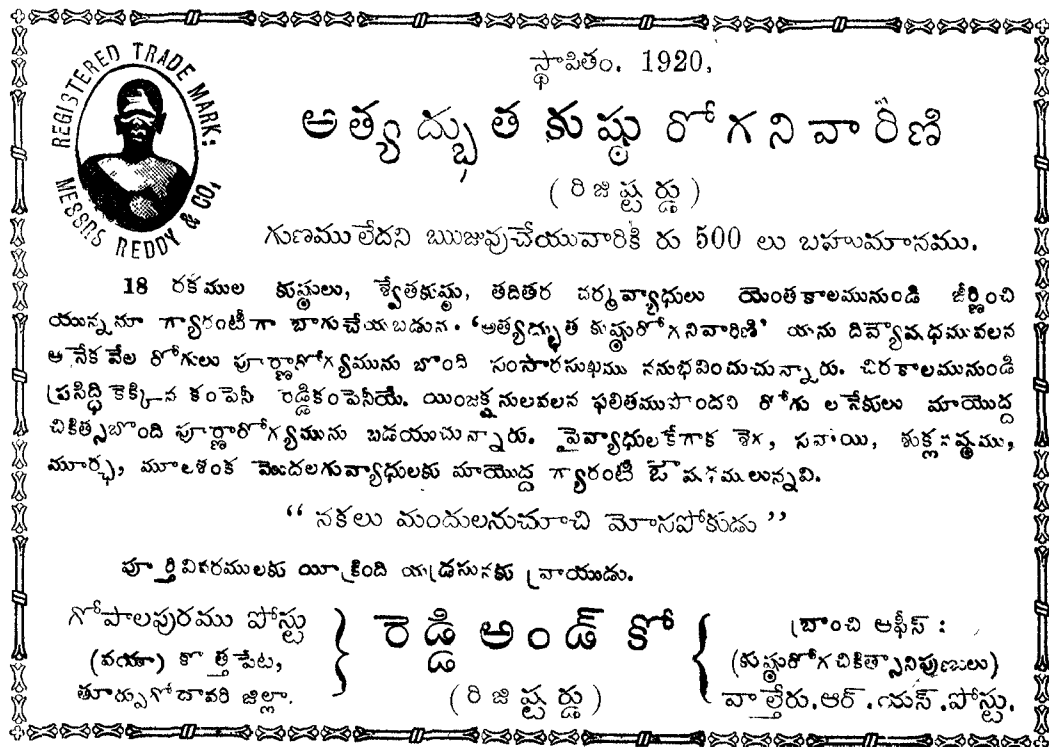 REGISTERED TRADE MARK:
MESSRS REDDY & CO,
స్థాపితం. 1920,
అత్యద్భుత కుష్ఠు రోగనివారిణి
(రిజిష్టర్డు)
గుణములేదని ఋజువుచేయువారికి రు 500 లు బహుమానము.
18 రకముల కుష్ఠులు, శ్వేతకుష్ఠు, తదితర చర్మవ్యాధులు యెంతకాలమునుండి జీర్ణించి
యున్ననూ గ్యారంటీగా బాగుచేయబడును. ‘అత్యద్భుత కుష్ఠురోగనివారిణి’ యను దివ్యౌషధమువలన
అనేకవేల రోగులు పూర్ణారోగ్యమును బొంది సంసారసుఖము ననుభవించుచున్నారు. చిరకాలమునుండి
ప్రసిద్ధి కెక్కిన కంపెనీ రెడ్డికంపెనీయే. యింజక్షనులవలన ఫలితముపొందని రోగు లనేకులు మాయొద్ద
చికిత్సబొంది పూర్ణారోగ్యమును బడయుచున్నారు. పైవ్యాధులకేగాక శెగ, సవాయి, శుక్లనష్టము,
మూర్ఛ, మూలశంక మొదలగువ్యాధులకు మాయొద్ద గ్యారంటీ ఔషధములున్నవి.
“ నకలు మందులనుచూచి మోసపోకుడు ”
పూర్తివివరములకు యీక్రింది యడ్రసునకు వ్రాయుడు.
గోపాలపురము పోస్టు
(వయా) కొత్తపేట,
తూర్పుగోదావరి జిల్లా.
రెడ్డి అండ్ కో
(రిజిష్టర్డు)
బ్రాంచి ఆఫీస్ :
(కుష్ఠురోగచికిత్సానిపుణులు)
వాల్తేరు.ఆర్.యస్.పోస్టు.